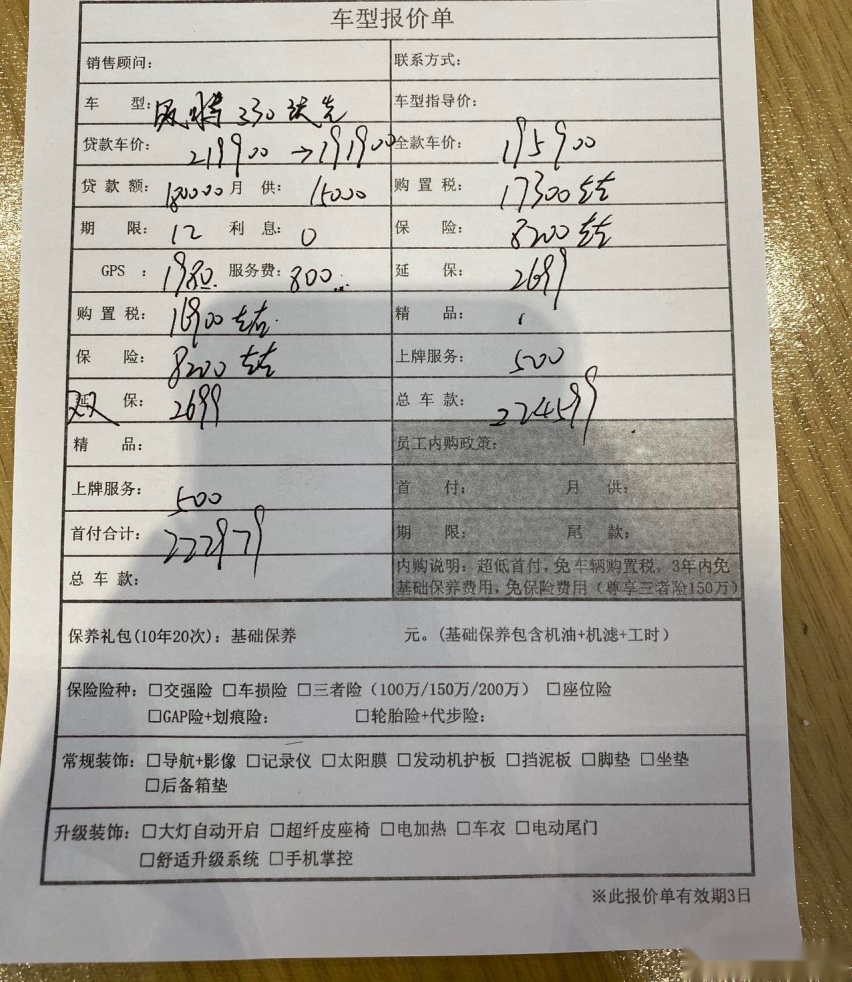 车型报价单
销售顾问： 联系方式：
车 型：帕萨特 330 淡先 车型指导价：
贷款车价：219900 →191900 全款车价：195900
贷 款 额：180000 月 供：15000 购 置 税：17300左右
期 限：12 利 息：0 保 险：8200左右
GPS ：1980 服务费：800 延 保：2699
购 置 税：16900左右 精 品：
保 险：8200左右 上牌服务：500
延 保：2699 总 车 款：224599
精 品： 员工内购政策：
上牌服务：500 首 付： 月 供：
首付合计：222979 期 限： 尾 款：
总 车 款： 内购说明：超低首付，免车辆购置税，3年内免
基础保养费用，免保险费用（尊享三者险150万）
保养礼包(10年20次)：基础保养 元。(基础保养包含机油+机滤+工时)
保险险种：□交强险 □车损险 □三者险（100万/150万/200万） □座位险
□GAP险+划痕险： □轮胎险+代步险：
常规装饰：□导航+影像 □记录仪 □太阳膜 □发动机护板 □挡泥板 □脚垫 □坐垫
□后备箱垫
升级装饰：□大灯自动开启 □超纤皮座椅 □电加热 □车衣 □电动尾门
□舒适升级系统 □手机掌控
※此报价单有效期3日